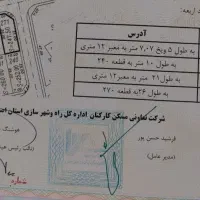 د اربعه:
آدرس
به طول ۵ وپخ ۷,۰۷ متر به معبر ۱۲ متری
به طول ۱۰ متر به قطعه ۲۴۰
به طول ۲۱ متر به معبر ۱۲ متری
به طول ۲۶ به قطعه ۲۷۰
شرکت تعاونی مسکن کارکنان اداره کل راه وشهر سازی استان
فرشید حسن پور
هوشنگ
(مدیر عامل)
نائب رئیس
شماره